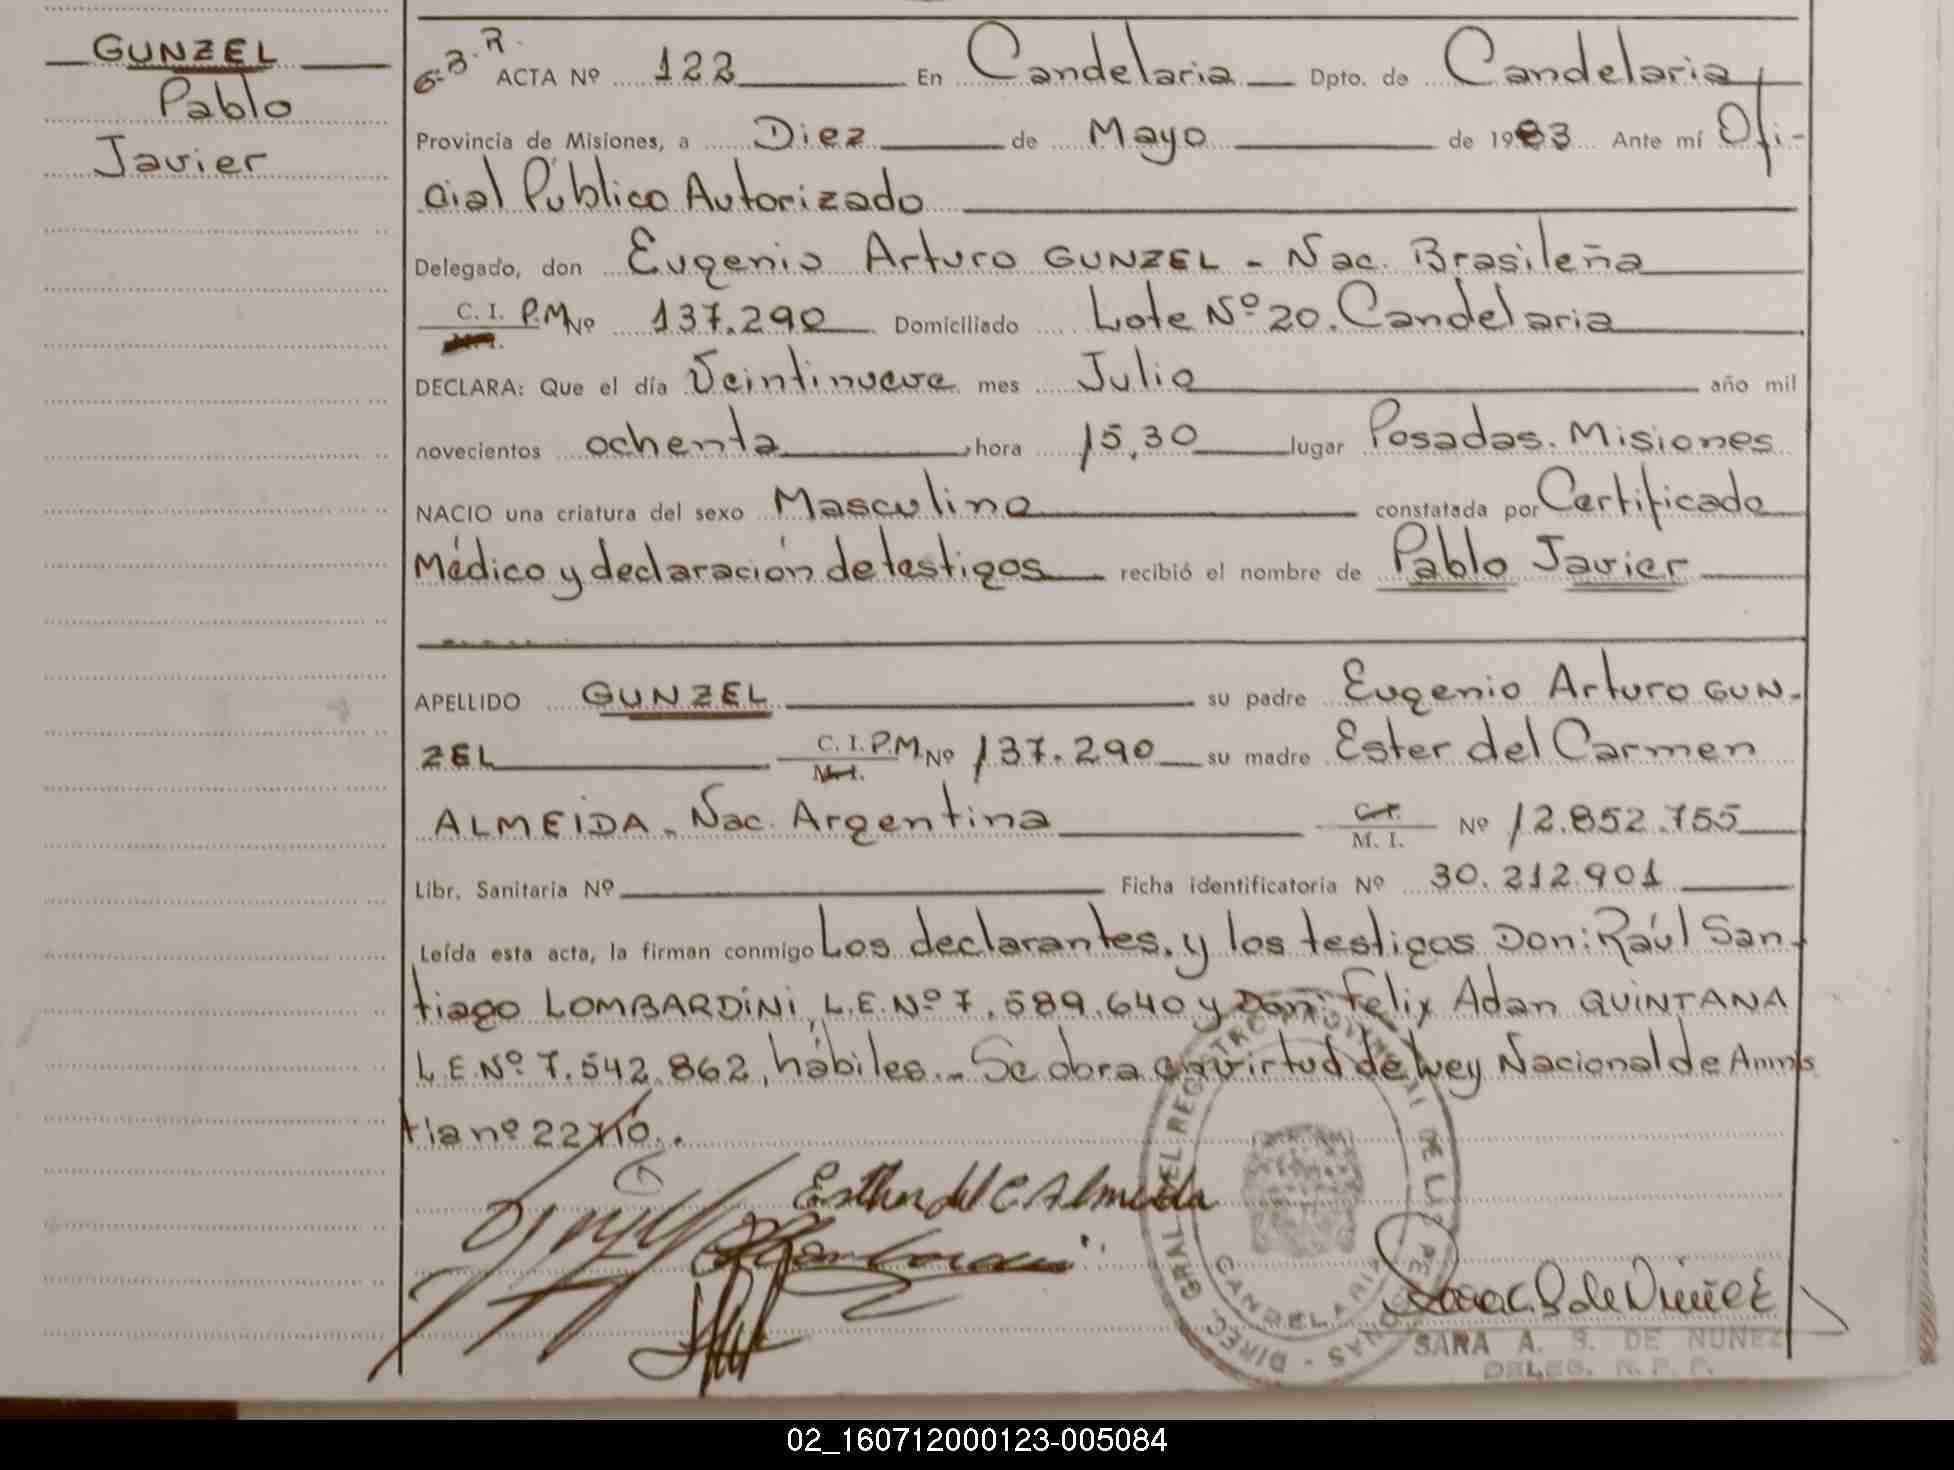 GUNZEL
Pablo
Javier
ACTA Nº 122 En Candelaria Dpto. de Candelaria,
Provincia de Misiones, a Diez de Mayo de 1983 Ante mí Ofi-
cial Público Autorizado
Delegado, don Eugenio Arturo GUNZEL - Nac. Brasileña
C. I. P.M Nº 137.290 Domiciliado Lote Nº 20. Candelaria
DECLARA: Que el día Veintinueve mes Julio año mil
novecientos ochenta, hora 15,30 lugar Posadas. Misiones
NACIO una criatura del sexo Masculino constatada por Certificado
Médico y declaración de testigos recibió el nombre de Pablo Javier
APELLIDO GUNZEL su padre Eugenio Arturo GUN-
ZEL C. I. P.M Nº 137.290 su madre Ester del Carmen
ALMEIDA. Nac. Argentina C.I. M. I. Nº 12.852.755
Libr. Sanitaria Nº Ficha identificatoria Nº 30.212.901
Leída esta acta, la firman conmigo Los declarantes, y los testigos Don: Raúl San-
tiago LOMBARDINI, L.E.Nº 7.589.640 y Don: Felix Adan QUINTANA
L.E.Nº 7.542.862, hábiles.- Se obra en virtud de Ley Nacional de Amnis
tia nº 22
Esther del C Almeida
DIREC. GRAL DEL REGISTRO PROVINCIAL DE LAS PERSONAS
CANDELARIA
SARA A. S. DE NUÑEZ
DELEG. R. P. P.
02_160712000123-005084